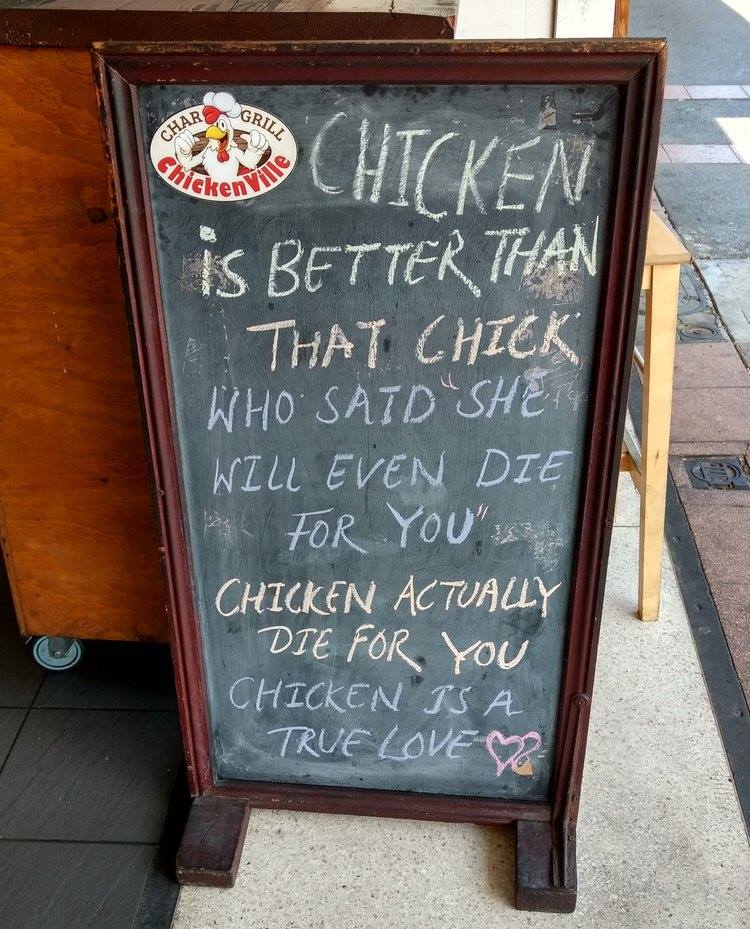 CHAR GRILL
ChickenVille
CHICKEN
iS BETTER THAN
THAT CHICK
WHO SAID "SHE
WILL EVEN DIE
FOR YOU"
CHICKEN ACTUALLY
DIE FOR YOU
CHICKEN IS A
TRUE LOVE